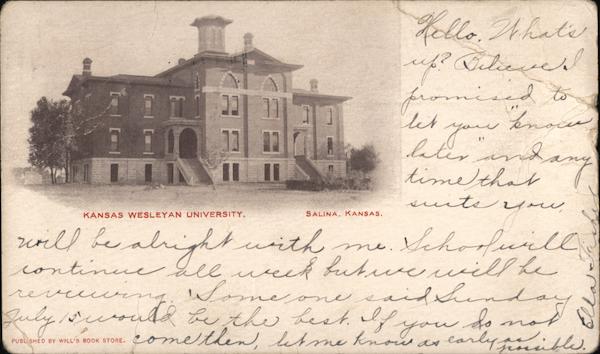 Hello. What's
up? Believe I
promised to
let you "know
later" and any
time that
suits you
KANSAS WESLEYAN UNIVERSITY. SALINA, KANSAS.
will be alright with me. School will
continue all week but we will be
reviewing. Some one said Sunday
July 15 would be the best. If you do not
come then, let me know as early as
possible.
PUBLISHED BY WILL'S BOOK STORE.
Ella